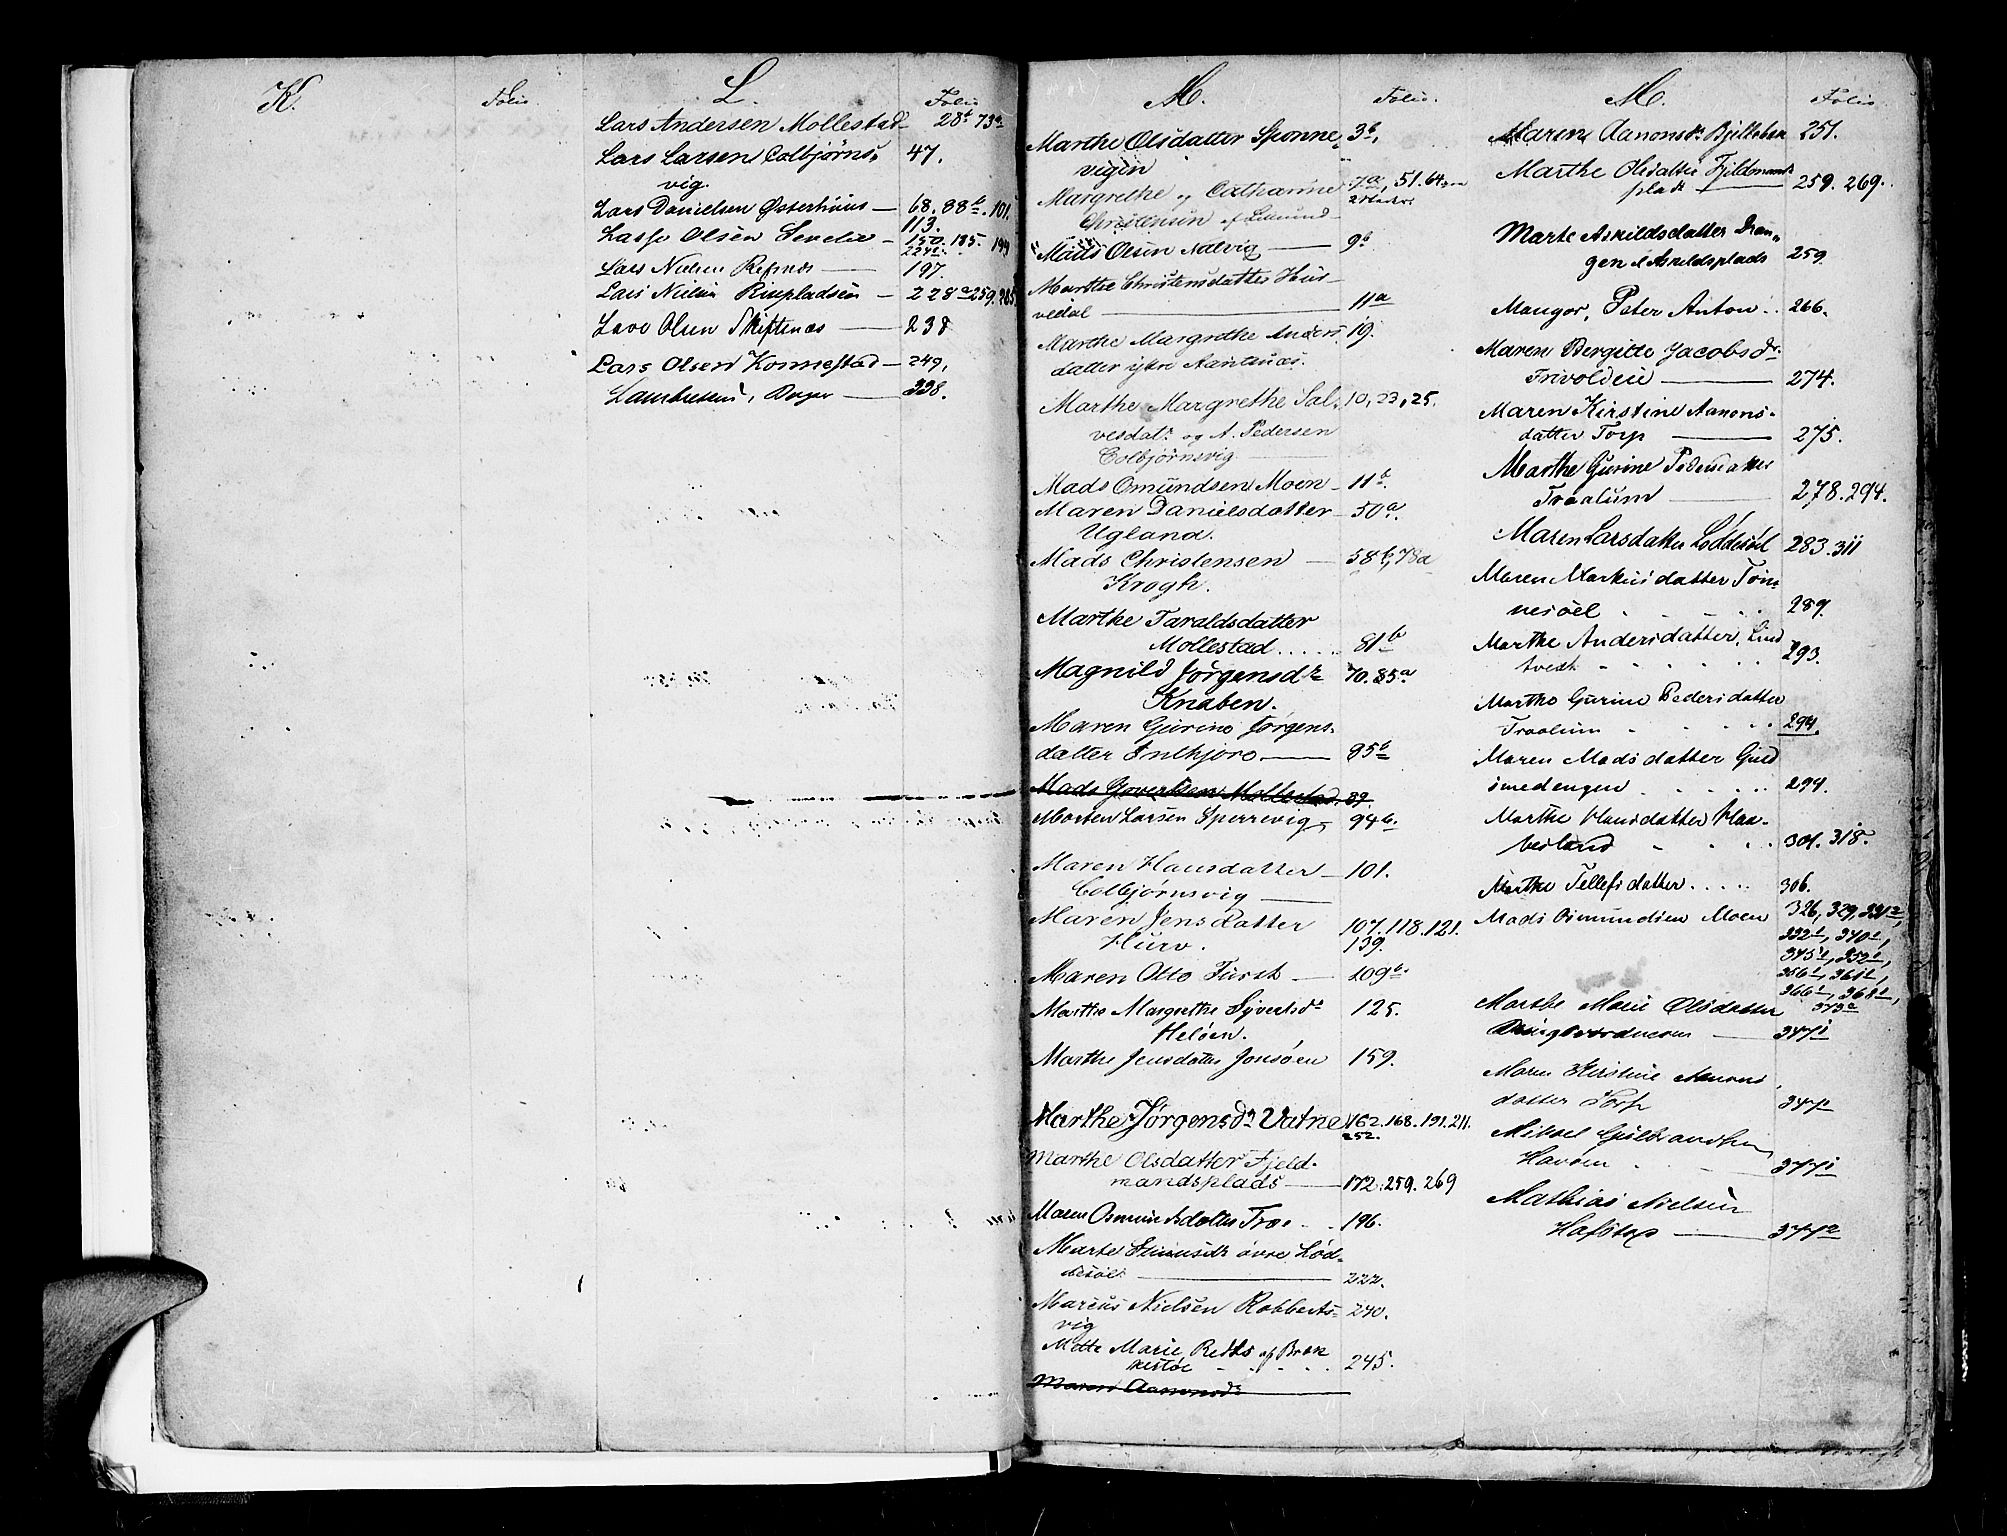 K.
Folio.
L.
Folio
Lars Andersen Mollestad 28b 73a
Lars Larsen Colbjørns- 47.
vig.
Lars Danielsen Østerhuus — 68. 88b. 101.
113.
Lasse Olsen — 150. 185. 199
Lars Nielsen Refsnes — 197.
Lars Nielsen Risepladsen — 228a 259.
Lave Olsen Skiftenæs — 238
Lars Olsen Konnestad — 249,
338.
M.
Folio.
Marthe Olsdatter Sponne- 3b,
vigin
Margrethe og Cathrine 7a, 51. 64
Christensen af
Mads Olsen Nalvig — 9b
Marthe Christensdatter Hus-
vedal — 11a
Marthe Margrethe Anders 19.
datter
Marthe Margrethe Sal- 10, 23, 25.
vesdatr og A. Pedersen
Colbjørnsvig —
Mads Omundsen Moen — 11b.
Maren Danielsdatter — 50a.
Ugland.
Mads Christensen — 58b, 78a
Krogh.
Marthe Taraldsdatter
Mollestad . . . . . 81b
Magnild Jørgensdr 70. 85a
Knaben.
Maren Gurine Jørgens-
datter — 85b
Mads Mollestad. 89.
Morten Larsen Sperrevig, 94b.
Maren Hansdatter — 101.
Colbjørnsvig —
Maren Jensdatter 107. 118. 121.
Hurv. 139.
Maren Otto Fürst — 109b.
Marthe Margrethe Syvertsdr 125.
Heløen.
Marthe Jensdatter Jonsøen 159.
Marthe Jørgensdr Vatne 162. 168. 191. 211.
252.
Marthe Olsdatter Fjeld-
mandsplads — 172. 259. 269
Maren Osmundsdatter Træe . . 196.
Marte øvre Lød-
desøl — 222.
Marcus Nielsen Robberts- 240.
vig
Mette Marie Redts af Bræk
kestøe . . . . 245.
Maren Aanonsdr
M.
Folio
Maren Aanonsdr 251.
Marthe Olsdatter Fjeldmands
plads 259. 269.
Marte Askildsdatter
gen d Askildsplads 259.
Mangor, Peter Anton . . 266.
Maren Bergitte Jacobsdr.
Trivolden — 274.
Maren Kirstine Aanons-
datter Torp — 275.
Marthe Gurine Pedersdatter
Traalum — 278. 294.
Maren Larsdatter Løddesøel 283. 311
Maren Markusdatter Tøn-
nesøel . . . . . 289.
Marthe Andersdatter, Lind
tvedt . . . . . 293.
Marthe Gurine Pedersdatter
Traalum . . . . 294.
Maren Madsdatter Guld
smedengen . . . . . 294.
Marthe Hansdatter Haa-
besland . . . . 301. 318.
Marthe Tellefsdatter . . . . . 306.
Mads Osmundsen Moen 326, 329, 331a,
332b, 340b,
345b, 352b,
356b, 361b,
366b, 368b,
373a
Marthe Marie Olsdatter
— 347b
Maren Kirstine Aanons
datter Torp 377b
Mikael Gulbrandsen
377b
Mathias Nielsen
Hafstad — 377a